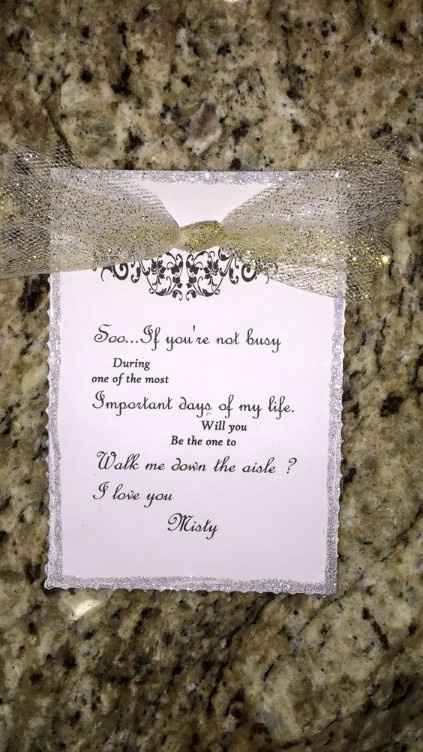 Soo...If you're not busy
During
one of the most
Important days of my life.
Will you
Be the one to
Walk me down the aisle ?
I love you
Misty